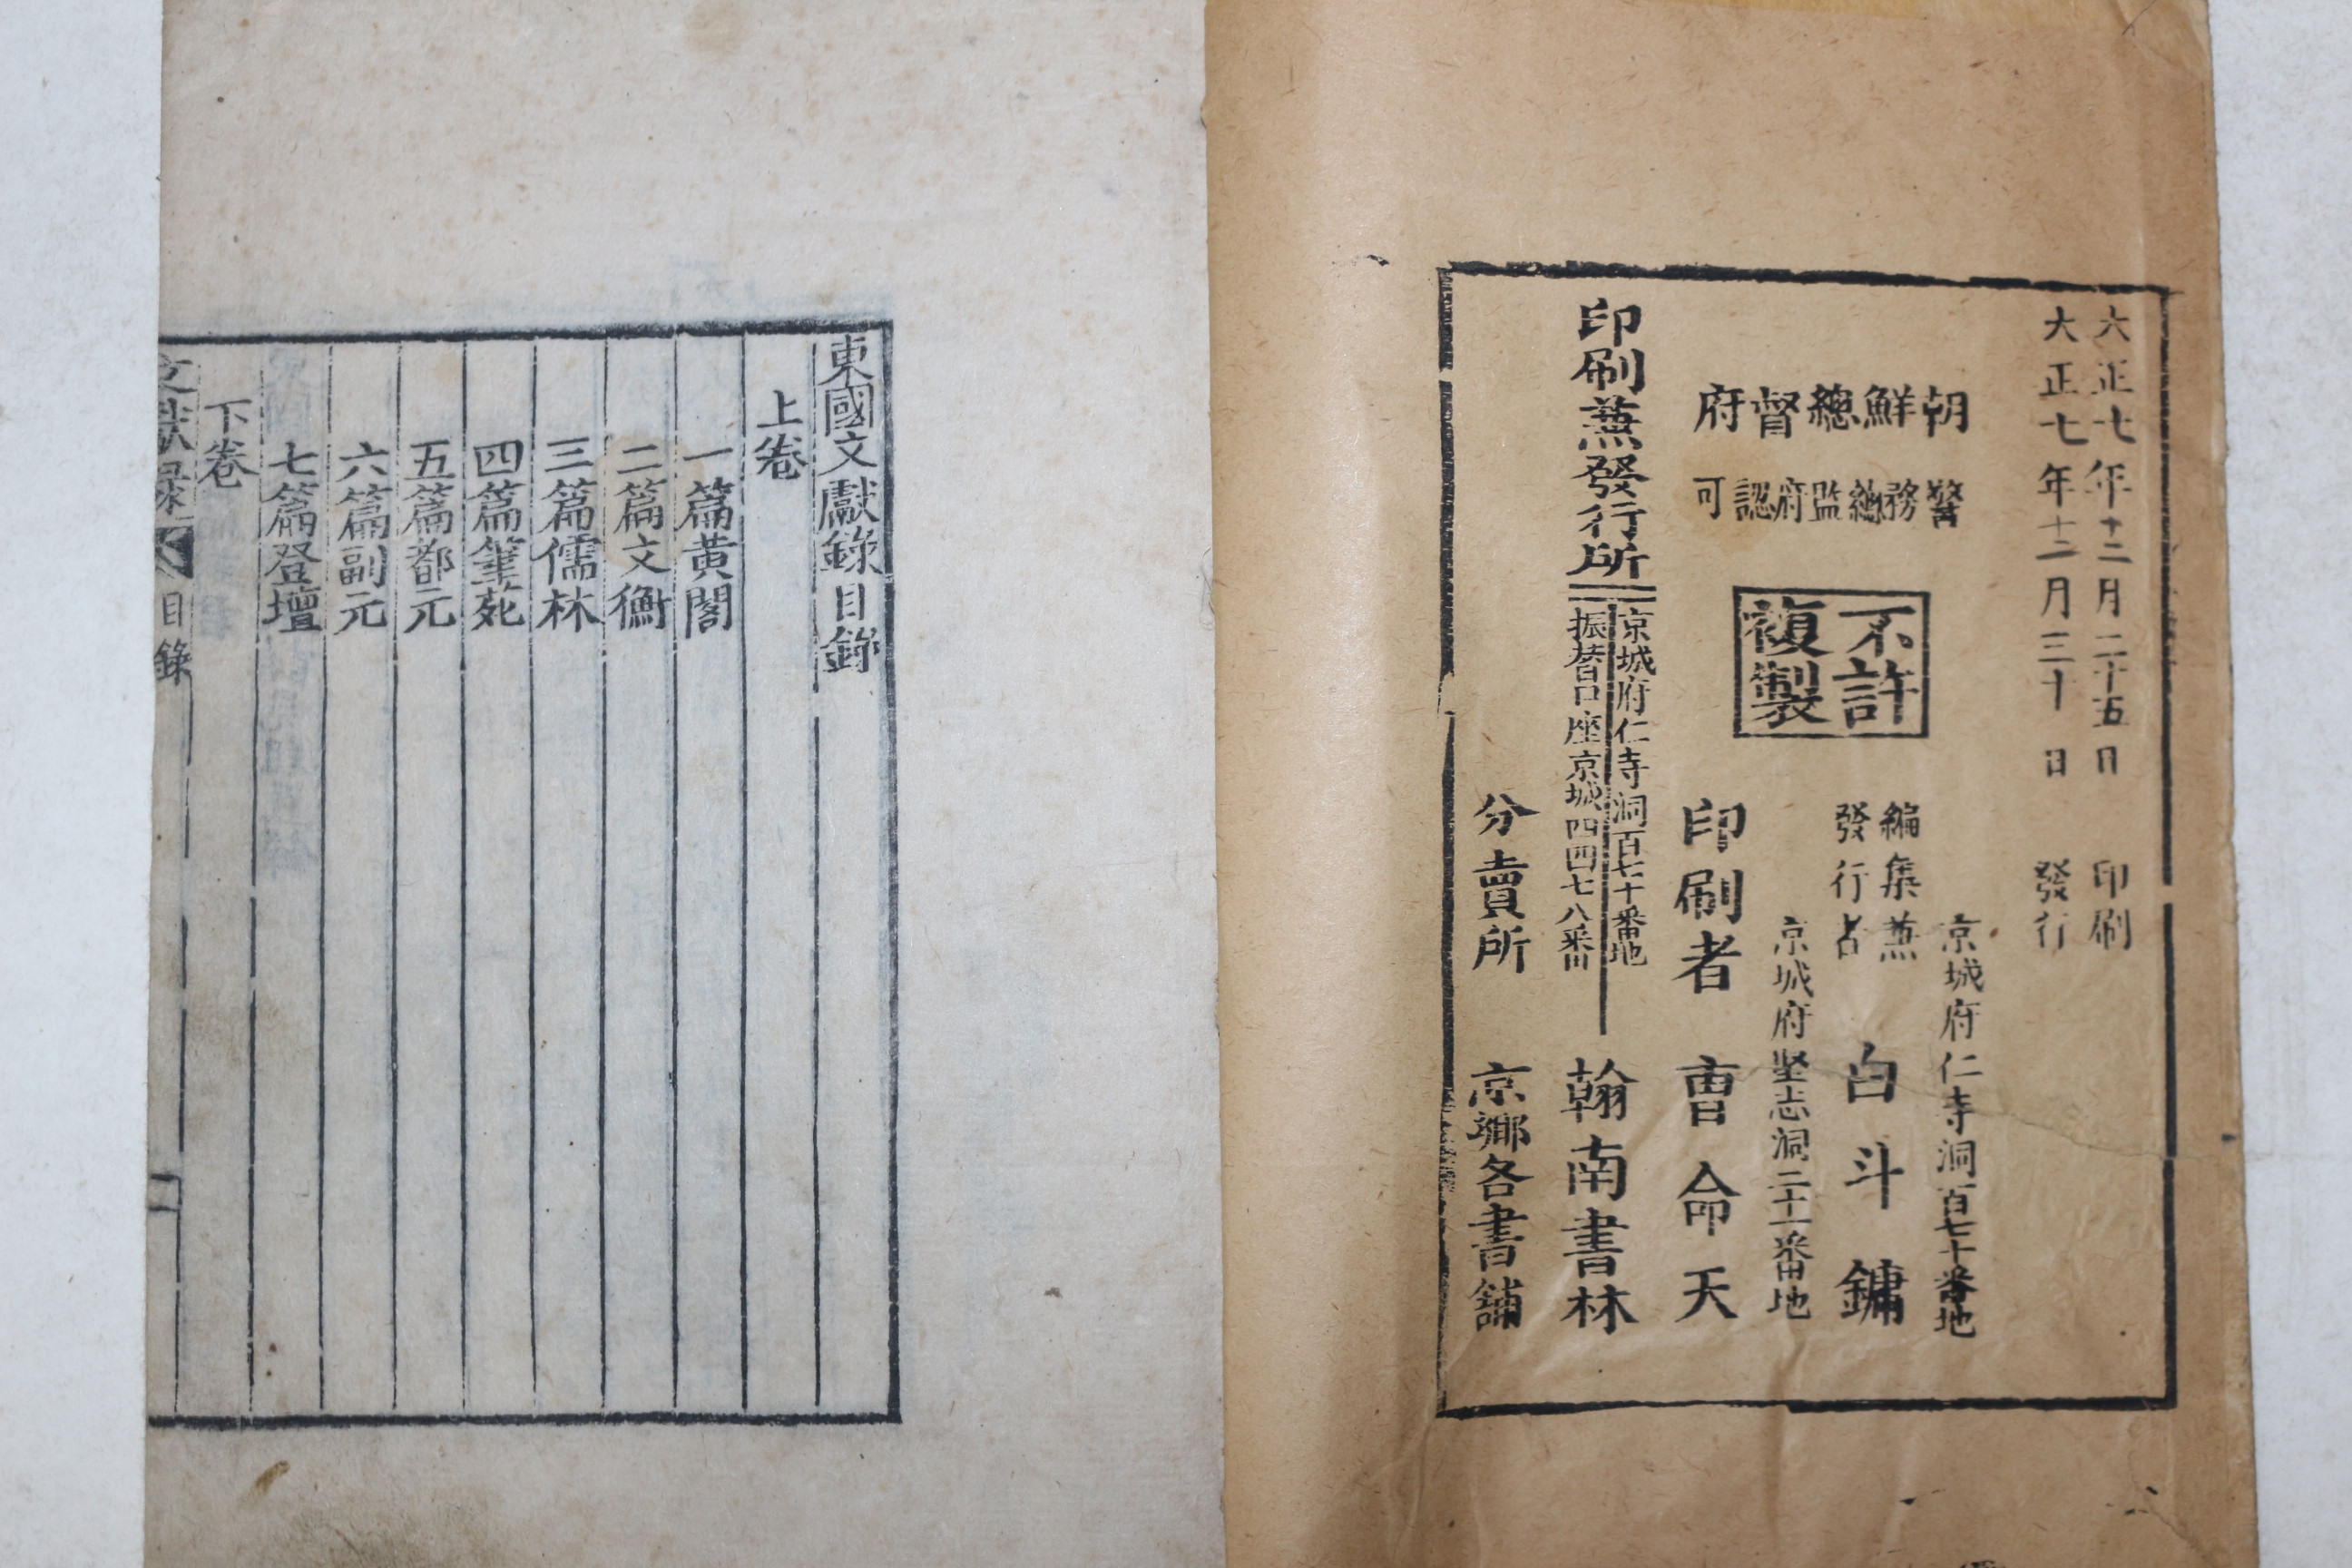 大正七年十二月二十五日 印刷
大正七年十二月三十日 發行
朝鮮總督府
警務總監府認可
不許
複製
京城府仁寺洞百七十番地
編集兼
發行者 白斗鏞
京城府堅志洞三十一番地
印刷者 曺命天
印刷兼發行所
京城府仁寺洞百七十番地
振替口座京城四四七八番
翰南書林
分賣所 京鄉各書舖
東國文獻錄目錄
上卷
一篇黄閣
二篇文衡
三篇儒林
四篇筆苑
五篇都元
六篇副元
七篇登壇
下卷
文獻錄 目錄